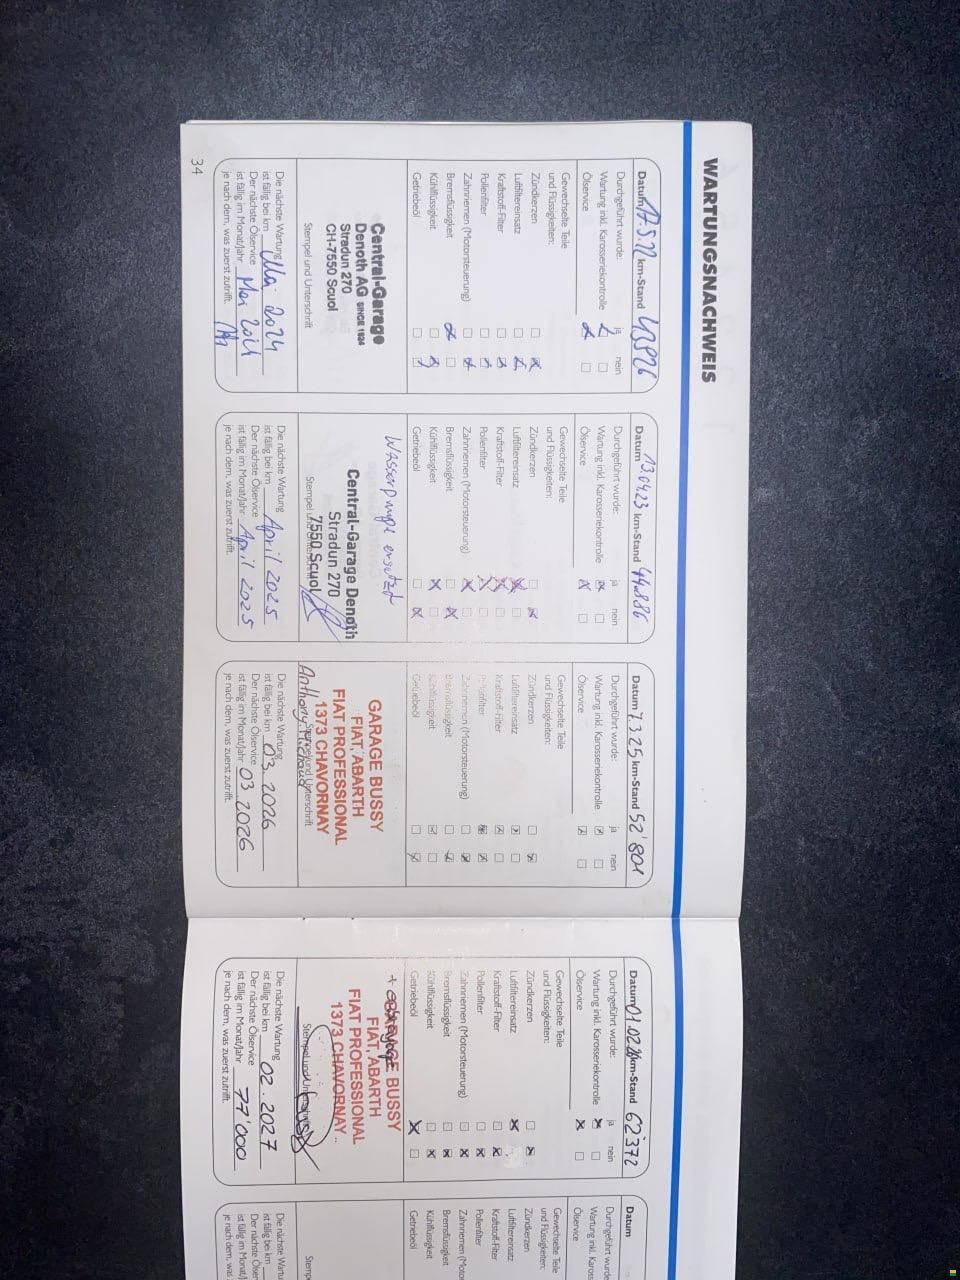 WARTUNGSNACHWEIS
Datum 17.5.22 km-Stand 43926
Durchgeführt wurde: ja nein
Wartung inkl. Karosseriekontrolle
Ölservice
Gewechselte Teile
und Flüssigkeiten:
Zündkerzen
Luftfiltereinsatz
Kraftstoff-Filter
Pollenfilter
Zahnriemen (Motorsteuerung)
Bremsflüssigkeit
Kühlflüssigkeit
Getriebeöl
Central-Garage
Denoth AG SINCE 1924
Stradun 270
CH-7550 Scuol
Stempel und Unterschrift
Die nächste Wartung
ist fällig bei km Mai 2024
Der nächste Ölservice
ist fällig im Monat/Jahr Mai 2024
je nach dem, was zuerst zutrifft.
34
Datum 13.04.23 km-Stand 44.886
Durchgeführt wurde: ja nein
Wartung inkl. Karosseriekontrolle
Ölservice
Gewechselte Teile
und Flüssigkeiten:
Zündkerzen
Luftfiltereinsatz
Kraftstoff-Filter
Pollenfilter
Zahnriemen (Motorsteuerung)
Bremsflüssigkeit
Kühlflüssigkeit
Getriebeöl
Wasserpumpe ersetzt
Central-Garage Denoth
Stradun 270
7550 Scuol
Stempel und Unterschrift
Die nächste Wartung
ist fällig bei km April 2025
Der nächste Ölservice
ist fällig im Monat/Jahr April 2025
je nach dem, was zuerst zutrifft.
Datum 7.3.25 km-Stand 52'801
Durchgeführt wurde: ja nein
Wartung inkl. Karosseriekontrolle
Ölservice
Gewechselte Teile
und Flüssigkeiten:
Zündkerzen
Luftfiltereinsatz
Kraftstoff-Filter
Pollenfilter
Zahnriemen (Motorsteuerung)
Bremsflüssigkeit
Kühlflüssigkeit
Getriebeöl
GARAGE BUSSY
FIAT, ABARTH
FIAT PROFESSIONAL
1373 CHAVORNAY
Stempel und Unterschrift
Anthony
Die nächste Wartung
ist fällig bei km 03.2026
Der nächste Ölservice
ist fällig im Monat/Jahr 03 2026
je nach dem, was zuerst zutrifft.
Datum 01.02.26 km-Stand 62372
Durchgeführt wurde: ja nein
Wartung inkl. Karosseriekontrolle
Ölservice
Gewechselte Teile
und Flüssigkeiten:
Zündkerzen
Luftfiltereinsatz
Kraftstoff-Filter
Pollenfilter
Zahnriemen (Motorsteuerung)
Bremsflüssigkeit
Kühlflüssigkeit
Getriebeöl
GARAGE BUSSY
FIAT, ABARTH
FIAT PROFESSIONAL
1373 CHAVORNAY
Stempel und Unterschrift
Die nächste Wartung
ist fällig bei km 02.2027
Der nächste Ölservice
ist fällig im Monat/Jahr 77'000
je nach dem, was zuerst zutrifft.
Datum
Durchgeführt wurde
Wartung inkl. Karos
Ölservice
Gewechselte Teile
und Flüssigkeiten:
Zündkerzen
Luftfiltereinsatz
Kraftstoff-Filter
Pollenfilter
Zahnriemen (Moto
Bremsflüssigkeit
Kühlflüssigkeit
Getriebeöl
Stem
Die nächste Wartun
ist fällig bei km
Der nächste Ölservic
ist fällig im Monat/J
je nach dem, was zu